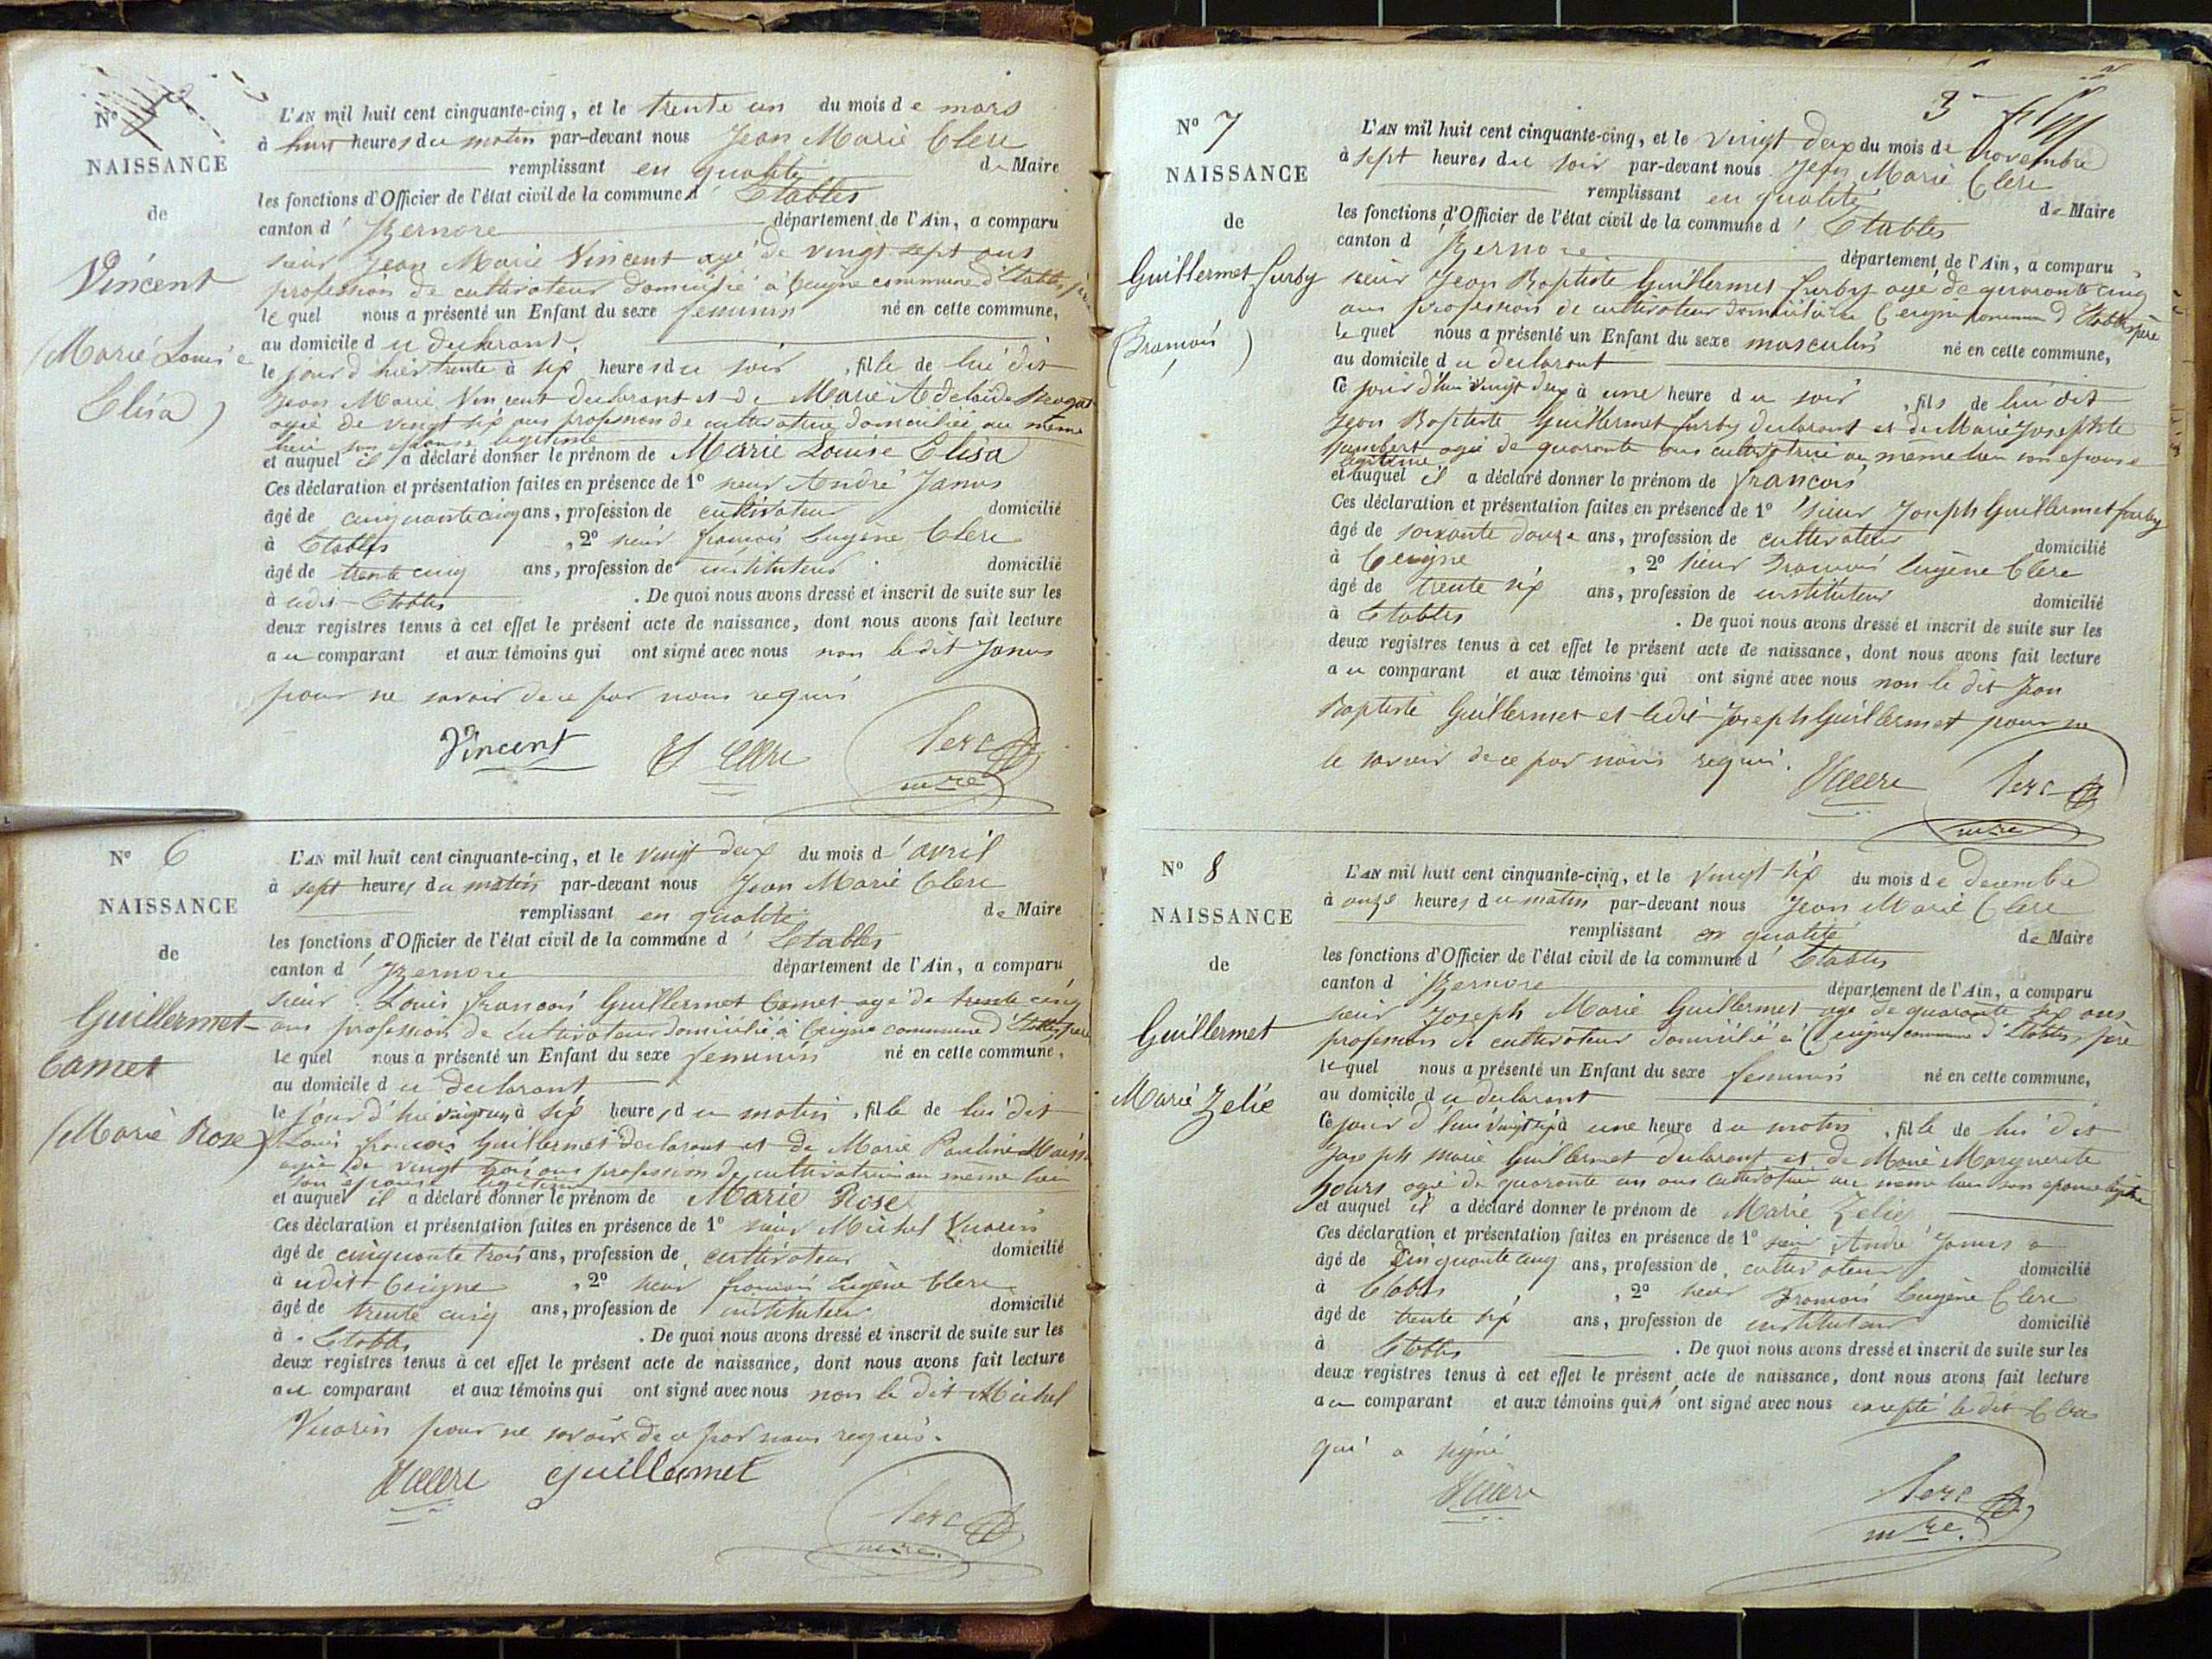 Nº
NAISSANCE
de
Vincent
(Marie Louise
Elisa)
L'AN mil huit cent cinquante-cinq, et le trente un du mois de mars
à huit heures du matin par-devant nous Jean Marie Clerc
remplissant en qualité de Maire
les fonctions d'Officier de l'état civil de la commune d' Etables
canton d' Izernore département de l'Ain, a comparu
sieur Jean Marie Vincent agé de vingt sept ans
profession de cultivateur domicilié à Ceigne commune d'Etables père
le quel nous a présenté un Enfant du sexe feminin né en cette commune,
au domicile du declarant
le jour d'hier trente à six heures du soir, fille de lui dit
Jean Marie Vincent declarant et de Marie Adelaide
agée de vingt six ans profession de cultivatrice domiciliée au même
lieu son epouse legitime
et auquel il a déclaré donner le prénom de Marie Louise Elisa
Ces déclaration et présentation faites en présence de 1º sieur André Janus
âgé de cinquante cinq ans, profession de cultivateur domicilié
à Etables, 2º sieur francois Eugène Clerc
âgé de trente cinq ans, profession de instituteur domicilié
à udit Etables. De quoi nous avons dressé et inscrit de suite sur les
deux registres tenus à cet effet le présent acte de naissance, dont nous avons fait lecture
au comparant et aux témoins qui ont signé avec nous non le dit Janus
pour ne savoir de ce par nous requis
Vincent Clerc Clerc
mre
Nº 6
NAISSANCE
de
Guillermet
Camet
(Marie Rose)
L'AN mil huit cent cinquante-cinq, et le vingt deux du mois d'avril
à sept heures du matin par-devant nous Jean Marie Clerc
remplissant en qualité de Maire
les fonctions d'Officier de l'état civil de la commune d' Etables
canton d' Izernore département de l'Ain, a comparu
sieur Louis francois Guillermet Camet agé de trente cinq
ans profession de cultivateur domicilié à Ceigne commune d'Etables père
le quel nous a présenté un Enfant du sexe feminin né en cette commune,
au domicile du declarant
le jour d'hier vingt un à six heures du matin, fille de lui dit
Louis francois Guillermet declarant et de Marie Pauline
agée de vingt trois ans profession de cultivatrice au même lieu
son epouse legitime
et auquel il a déclaré donner le prénom de Marie Rose
Ces déclaration et présentation faites en présence de 1º sieur Michel Vuarin
âgé de cinquante trois ans, profession de cultivateur domicilié
à udit Ceigne, 2º sieur francois Eugène Clerc
âgé de trente cinq ans, profession de instituteur domicilié
à Etables. De quoi nous avons dressé et inscrit de suite sur les
deux registres tenus à cet effet le présent acte de naissance, dont nous avons fait lecture
au comparant et aux témoins qui ont signé avec nous non le dit Michel
Vuarin pour ne savoir de ce par nous requis.
Clerc guillermet
Clerc
mre.
3
Nº 7
NAISSANCE
de
Guillermet furby
(Francois)
L'AN mil huit cent cinquante-cinq, et le vingt deux du mois de Novembre
à sept heures du soir par-devant nous Jean Marie Clerc
remplissant en qualité de Maire
les fonctions d'Officier de l'état civil de la commune d' Etables
canton d' Izernore département de l'Ain, a comparu
sieur Jean Baptiste Guillermet furby agé de quarante cinq
ans profession de cultivateur domicilié à Ceigne commune d'Etables père
le quel nous a présenté un Enfant du sexe masculin né en cette commune,
au domicile du declarant
Ce jour d'hui vingt deux à une heure du soir, fils de lui dit
Jean Baptiste Guillermet furby declarant et de Marie Josephte
Humbert agée de quarante ans cultivatrice au même lieu son epouse
legitime
et auquel il a déclaré donner le prénom de francois
Ces déclaration et présentation faites en présence de 1º sieur Joseph Guillermet furby
âgé de soixante douze ans, profession de cultivateur domicilié
à Ceigne, 2º sieur Francois Eugène Clerc
âgé de trente six ans, profession de instituteur domicilié
à Etables. De quoi nous avons dressé et inscrit de suite sur les
deux registres tenus à cet effet le présent acte de naissance, dont nous avons fait lecture
au comparant et aux témoins qui ont signé avec nous non le dit Jean
Baptiste Guillermet et ledit Joseph Guillermet pour ne
le savoir de ce par nous requis.
Clerc Clerc
mre
Nº 8
NAISSANCE
de
Guillermet
Marie Zelie
L'AN mil huit cent cinquante-cinq, et le vingt six du mois de decembre
à onze heures du matin par-devant nous Jean Marie Clerc
remplissant en qualité de Maire
les fonctions d'Officier de l'état civil de la commune d' Etables
canton d' Izernore département de l'Ain, a comparu
sieur Joseph Marie Guillermet agé de quarante six ans
profession de cultivateur domicilié à Ceigne commune d'Etables, père
le quel nous a présenté un Enfant du sexe feminin né en cette commune,
au domicile du declarant
Ce jour d'hui vingt six à une heure du matin, fille de lui dit
Joseph Marie Guillermet declarant et de Marie Marguerite
agée de quarante un ans cultivatrice au même lieu son epouse legitime
et auquel il a déclaré donner le prénom de Marie Zelie
Ces déclaration et présentation faites en présence de 1º sieur André Janus
âgé de Cinquante cinq ans, profession de cultivateur domicilié
à Etables, 2º sieur Francois Eugène Clerc
âgé de trente six ans, profession de instituteur domicilié
à Etables. De quoi nous avons dressé et inscrit de suite sur les
deux registres tenus à cet effet le présent acte de naissance, dont nous avons fait lecture
au comparant et aux témoins qui n'ont signé avec nous excepté le dit Clerc
qui a signé
Clerc
Clerc
mre.